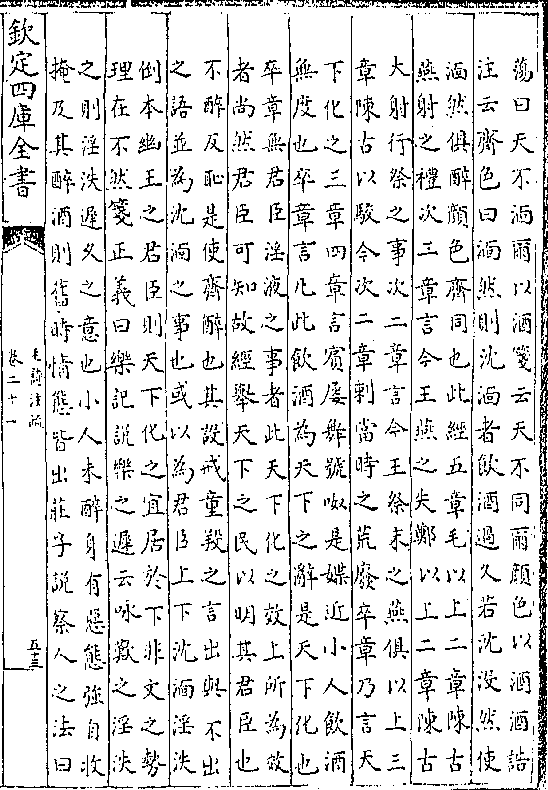 蕩曰天不湎爾以酒箋云天不同爾顔色以酒酒誥
注云齊色曰湎然則沈湎者飲酒過久若沈没然使
湎然俱醉顔色齊同也此經五章毛以上二章陳古
燕射之禮次三章言今王燕之失鄭以上二章陳古
大射行祭之事次二章言今王祭末之燕俱以上三
章陳古以駮今次二章刺當時之荒廢卒章乃言天
下化之三章四章言賓屢舞號呶是媟近小人飲酒
無度也卒章言凡此飲酒為天下之辭是天下化也
卒章無君臣淫液之事者此天下化之效上所為效
者尚然君臣可知故經舉天下之民以明其君臣也
不醉反恥是使齊醉也其設戒童羖之言出與不出
之語並為沈湎之事也或以為君臣上下沈湎淫泆
倒本幽王之君臣則天下化之宜居於下非文之勢
理在不然箋正義曰樂記説樂之遲云咏歎之淫泆
之則淫泆遲久之意也小人未醉身有惡態強自收
掩及其醉酒則舊時情態皆出莊子説察人之法曰
欽定四庫全書
毛詩注疏
卷二十一
五十三